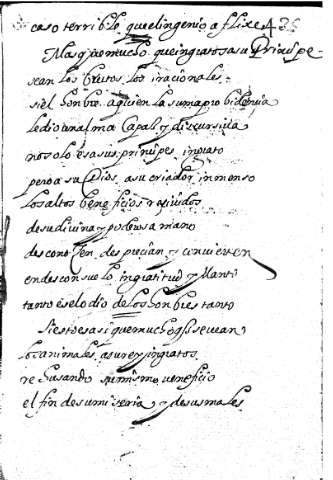 caso terrible que el ingenio aflixe 435
Mas q̄ mucho que ingratos a su Principe
sean los brutos los irracionales
si el honbre a quien la suma probidencia
le dio un alma capaz y discursiva
no solo es a su principe ingrato
pero a su Dios, a su criador inmenso
los altos beneficios reciuidos
de su diuina y poderosa mano
desconoçen, despreçian y convierten
en desconsuelo ingratitud y llanto
tanto es el odio de los honbres tanto
Si esto es asi que mucho q̄ se vean
los animales a su rey ingratos
rehusando su mismo veneficio
el fin de su miseria y de sus males